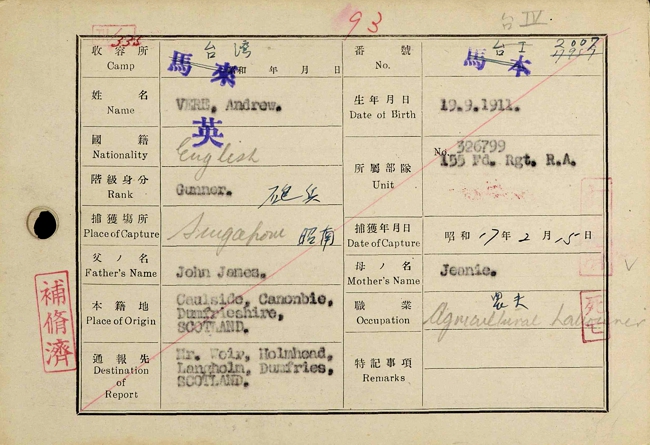 93
台IV
335
收容所 Camp 台湾 馬來 昭和 年 月 日
番號 No. 台I 馬本 2007
姓名 Name VERE, Andrew.
生年月日 Date of Birth 19.9.1911.
國籍 Nationality 英 English
所屬部隊 Unit No. 326799
155 Fd. Rgt. R.A.
階級身分 Rank Gunner. 砲兵
捕獲場所 Place of Capture Singapore 昭南
捕獲年月日 Date of Capture 昭和 17年 2月 15日
父ノ名 Father's Name John James.
母ノ名 Mother's Name Jeanie.
本籍地 Place of Origin Caulside, Canonbie,
Dumfrieshire,
SCOTLAND.
職業 Occupation 農夫
Agricultural Labourer
通報先 Destination of Report Mr. Weir, Holmhead,
Langholm, Dumfries,
SCOTLAND.
特記事項 Remarks
補脩濟
死亡